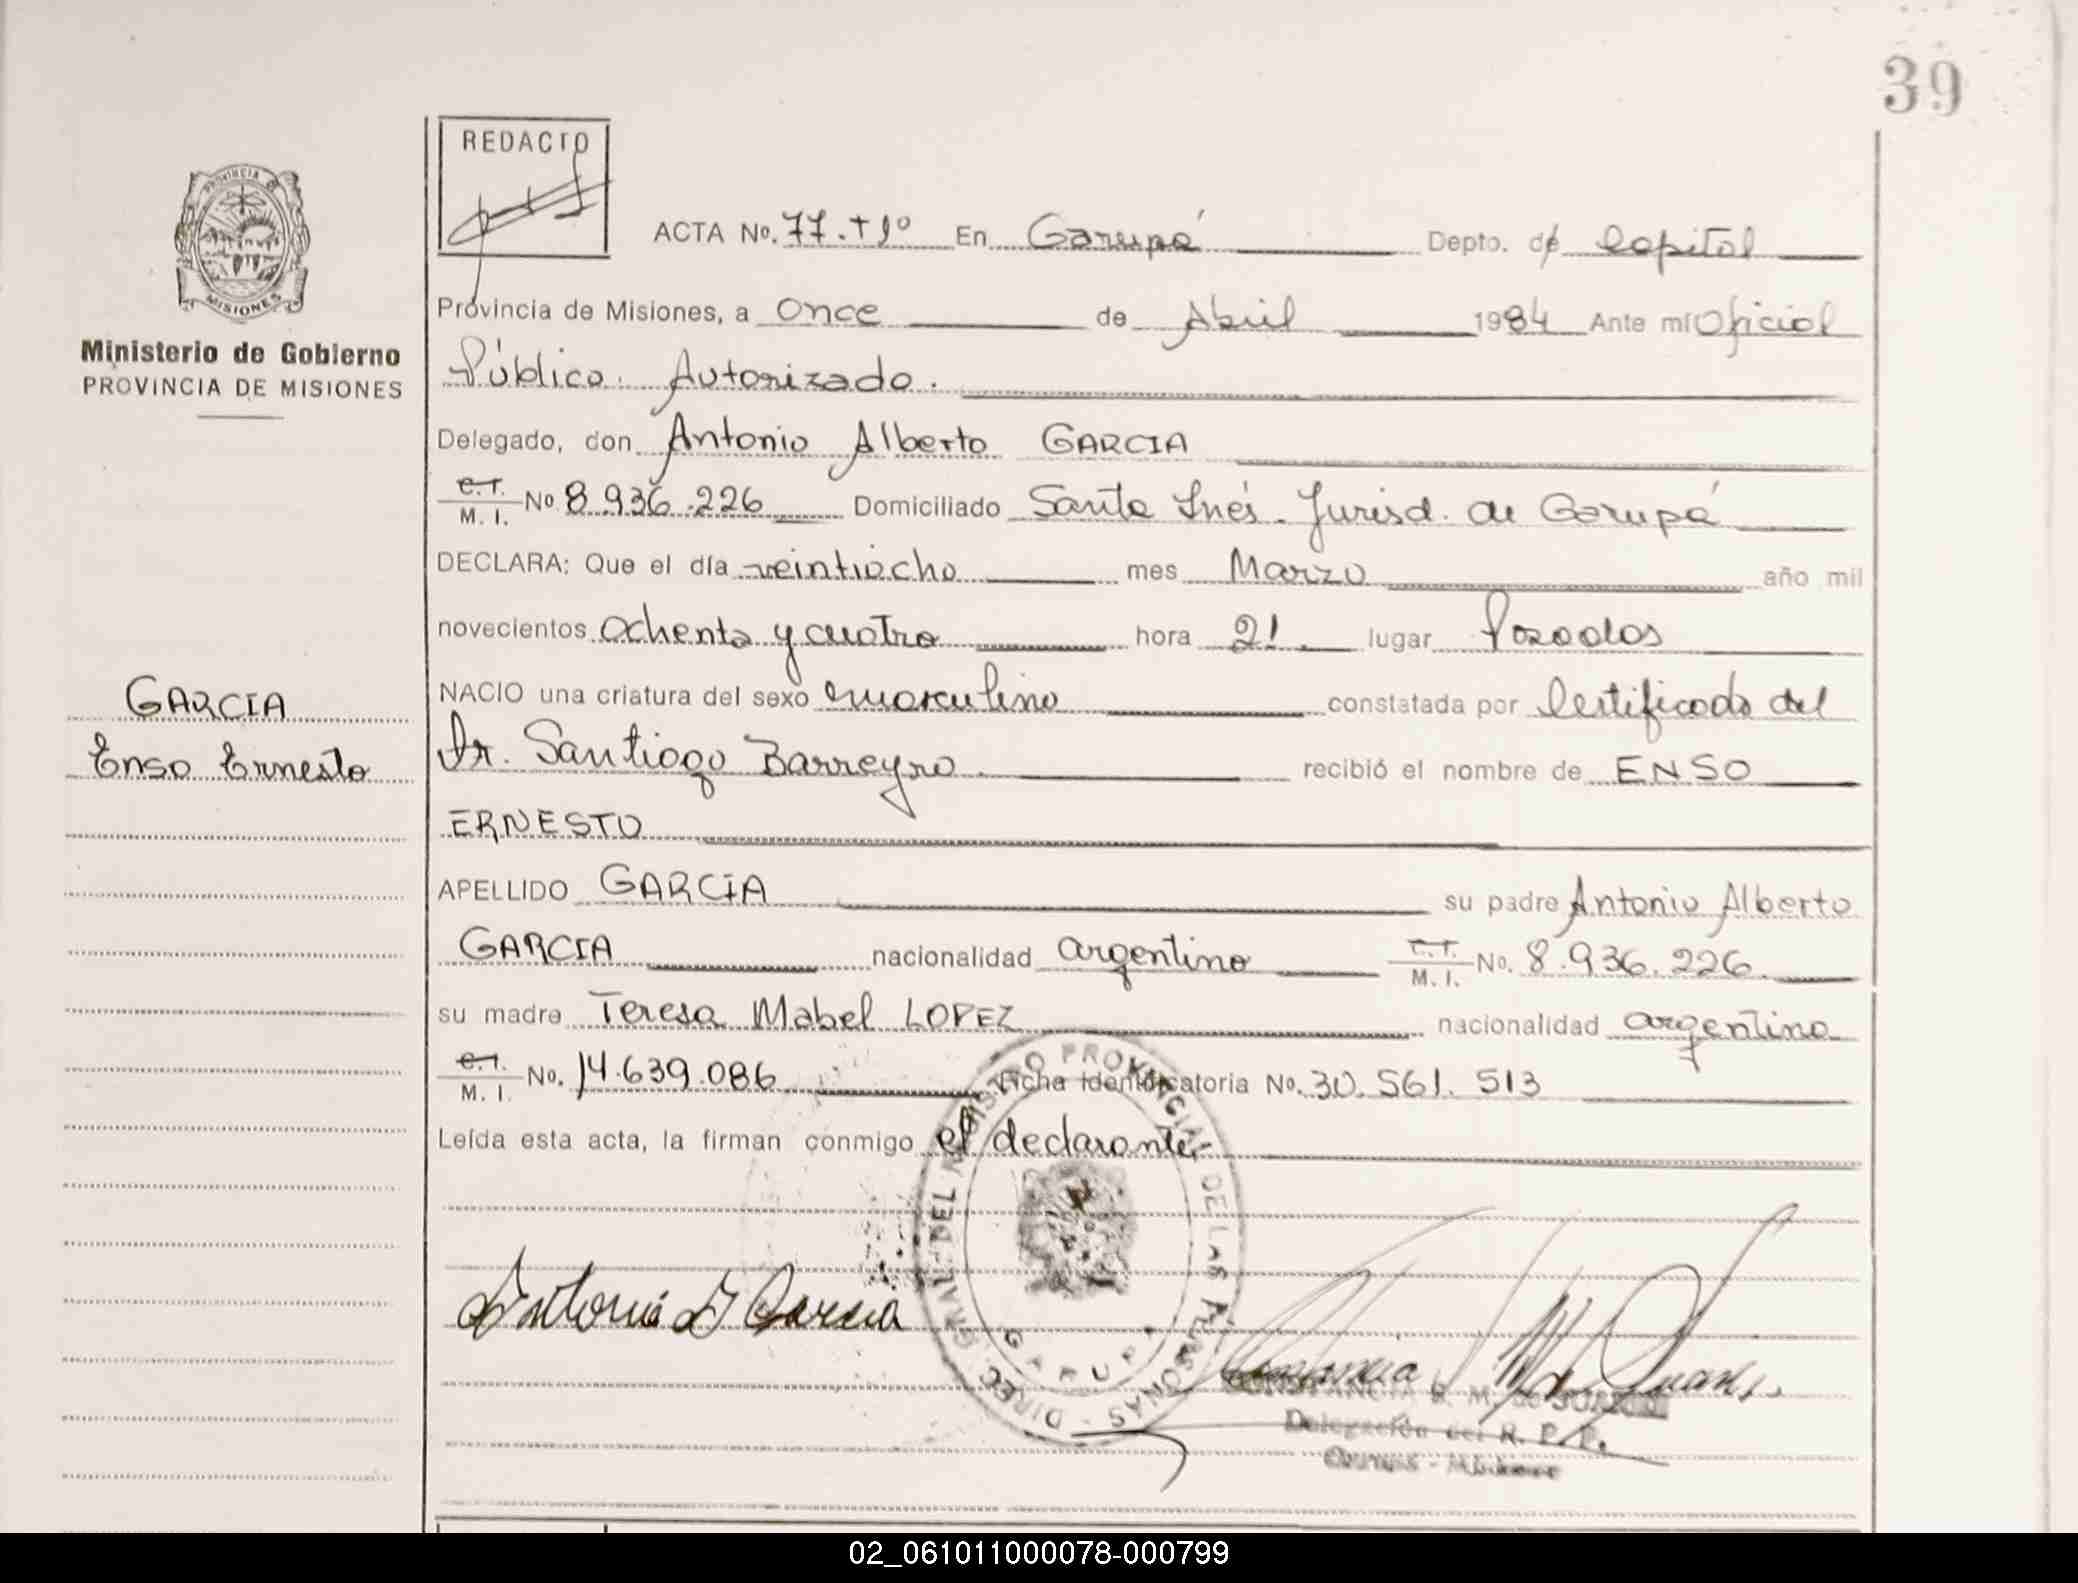 39
REDACTO
PROVINCIA DE
MISIONES
Ministerio de Gobierno
PROVINCIA DE MISIONES
GARCIA
Enso Ernesto
ACTA No. 77. T 1º En Garupá Depto. de Capital
Provincia de Misiones, a Once de Abril 1984 Ante mí Oficial
Público Autorizado.
Delegado, don Antonio Alberto GARCIA
C.I. M. I. No 8.936.226 Domiciliado Santa Inés - Jurisd. de Garupá
DECLARA: Que el día veintiocho mes Marzo año mil
novecientos ochenta y cuatro hora 21 lugar Posadas
NACIO una criatura del sexo masculino constatada por Certificado del
Dr. Santiago Barreyro. recibió el nombre de ENSO
ERNESTO
APELLIDO GARCIA su padre Antonio Alberto
GARCIA nacionalidad argentino C.I. M. I. No. 8.936.226
su madre Teresa Mabel LOPEZ nacionalidad argentina
C.I. M. I. No. 14.639.086 Ficha identificatoria No. 30.561.513
Leída esta acta, la firman conmigo el declarante
DIREC. GRAL. DEL REGISTRO PROVINCIAL DE LAS PERSONAS
GARUPA
Antonio A Garcia
Delegación del R. P. P.
02_061011000078-000799